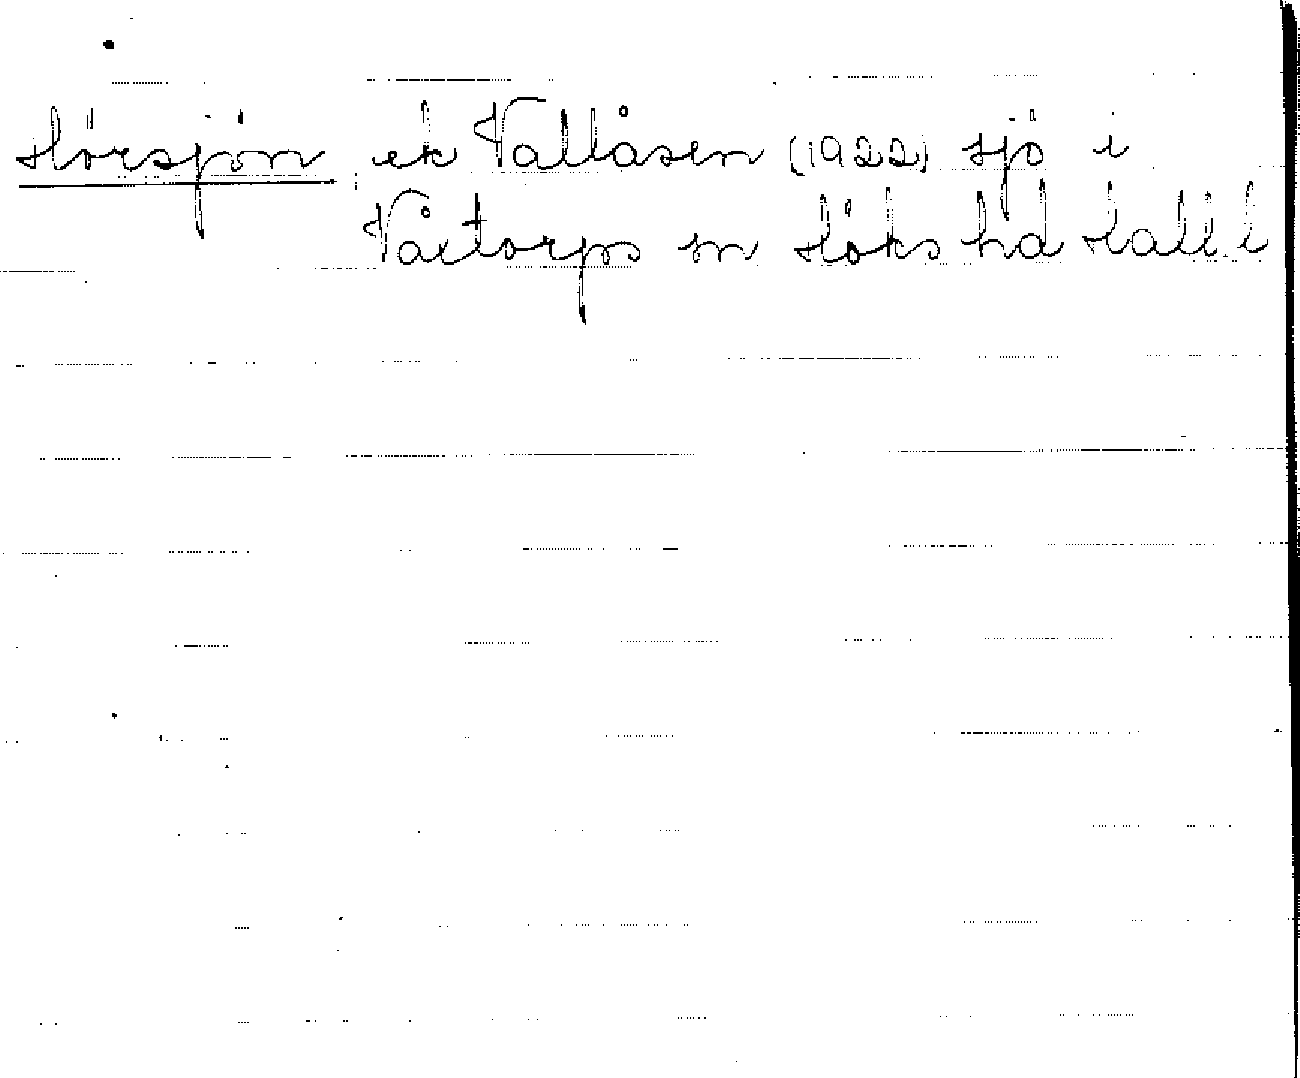 Hörsjön ek Vallåsen (1922) sjö i
Våxtorps sn Höks hd Hall l